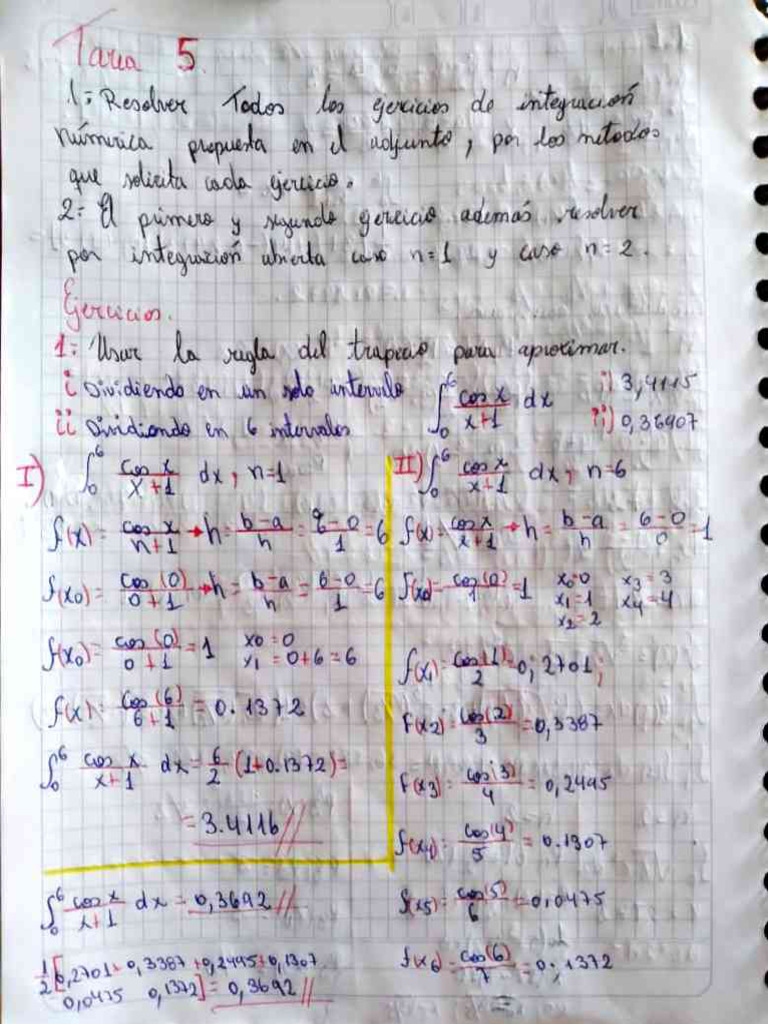 Tarea 5.
1: Resolver Todos los ejercicios de integración
númerica propuesta en el adjunto, por los metodos
que solicita cada ejercicio.
2: El primero y segundo ejercicio además resolver
por integración abierta caso n=1 y caso n=2.
Ejercicios.
1: Usar la regla del trapecio para aproximar.
i Dividiendo en un solo intervalo
ii Dividiendo en 6 intervalos
∫₀⁶ cos x / x+1 dx
i) 3,4115
ii) 0,36907
I) ∫₀⁶ cos x / x+1 dx, n=1
f(x) = cos x / n+1 → h = b-a / n = 6-0 / 1 = 6
f(x0) = cos(0) / 0+1 → h = b-a / n = 6-0 / 1 = 6
f(x0) = cos(0) / 0+1 = 1 x0 = 0
x1 = 0+6 = 6
f(x) = cos(6) / 6+1 = 0.1372
∫₀⁶ cos x / x+1 dx = 6/2 (1+0.1372) =
= 3.4116//
II) ∫₀⁶ cos x / x+1 dx, n=6
f(x) = cos x / x+1 → h = b-a / n = 6-0 / 0 = 1
f(x0) = cos(0) / 1 = 1 x0=0 x3 = 3
x1=1 x4=4
x2=2
f(x1) = cos(1) / 2 = 0,2701;
f(x2) = cos(2) / 3 = 0,3387
f(x3) = cos(3) / 4 = 0,2495
f(x4) = cos(4) / 5 = 0.1307
f(x5) = cos(5) / 6 = 0,0475
f(x6) = cos(6) / 7 = 0,1372
∫₀⁶ cos x / x+1 dx = 0,3692//
1/2 [0,2701+0,3387+0,2495+0,1307
0,0475 0,1372] = 0,3692//